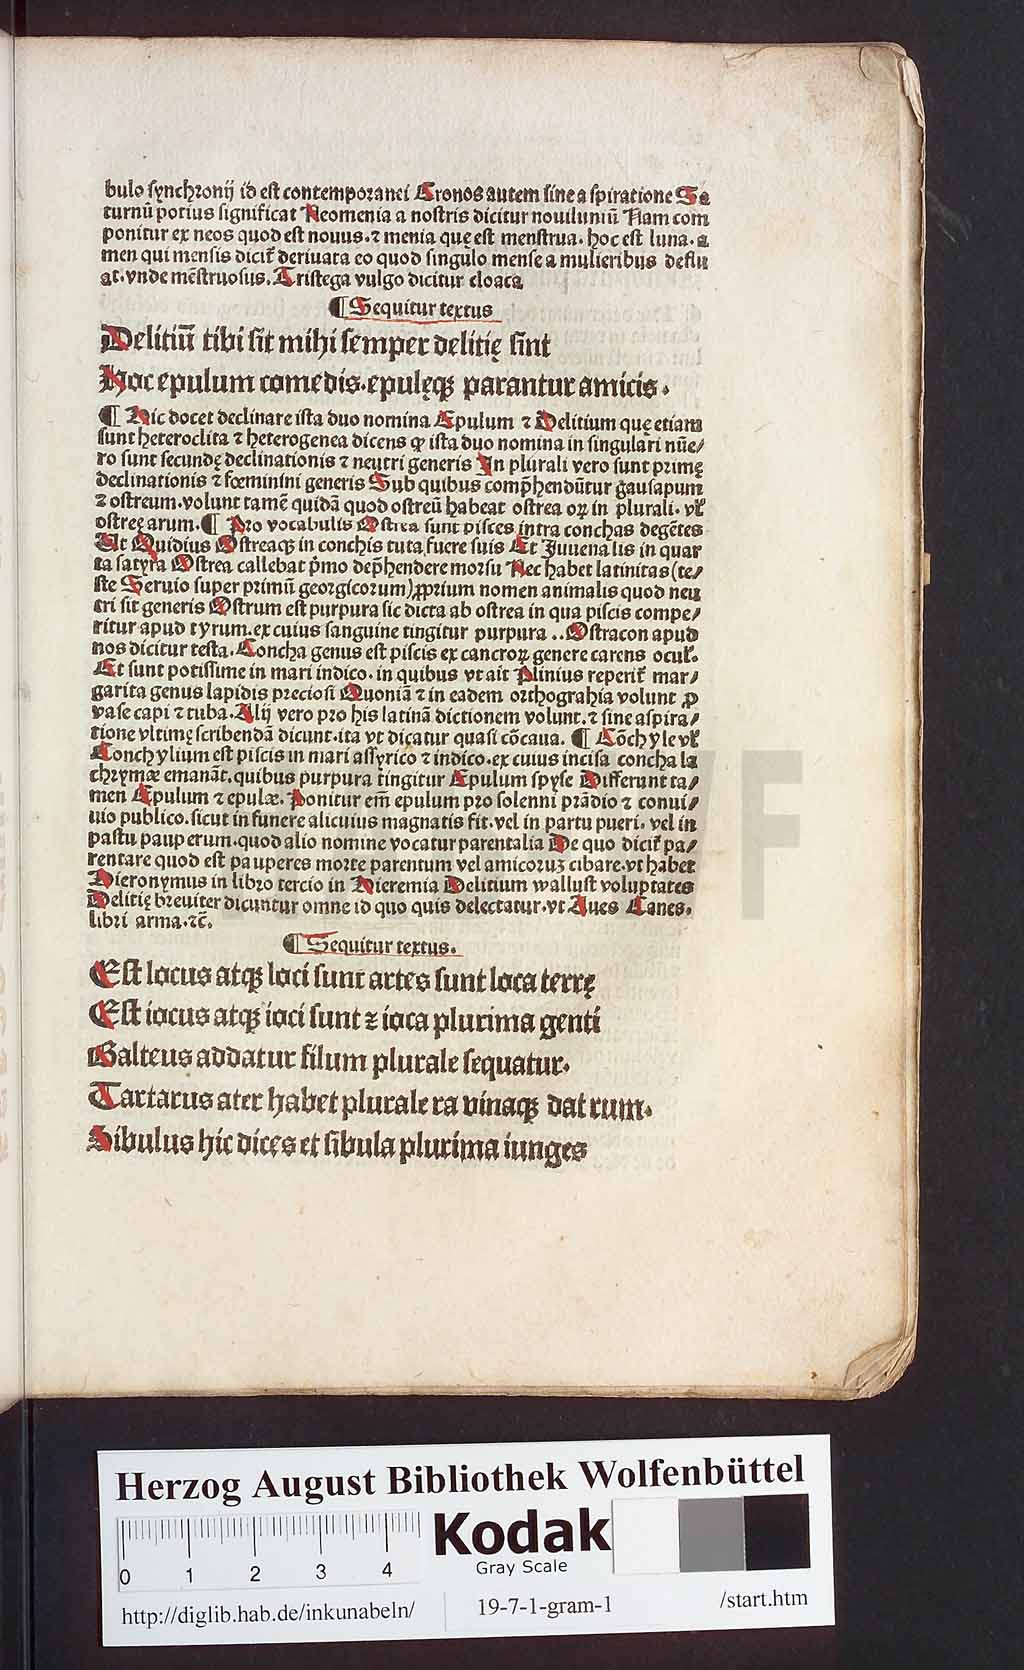 bulo synchronij id est contemporanei Cronos autem sine aspiratione Sa
turnū potius significat Neomenia a nostris dicitur nouiluniū Nam com
ponitur ex neos quod est nouus. ⁊ menia quę est menstrua. hoc est luna. a
men qui mensis dicit᷑ deriuata eo quod singulo mense a mulieribus deflu
at. vnde mēstruosus. Tristega vulgo dicitur cloaca
¶ Sequitur textus
Delitiū tibi sit mihi semper delitię sint
Hoc epulum comedis. epulęqꝫ parantur amicis.
¶ Hic docet declinare ista duo nomina Epulum ⁊ Delitium quę etiam
sunt heteroclita ⁊ heterogenea dicens ꝙ ista duo nomina in singulari nūe/
ro sunt secundę declinationis ⁊ neutri generis In plurali vero sunt primę
declinationis ⁊ fœminini generis Sub quibus comp̄hendūtur gausapum
⁊ ostreum. volunt tamē quidā quod ostreū habeat ostrea oꝝ in plurali. vl᷑
ostreę arum. ¶ Pro vocabulis Ostrea sunt pisces intra conchas degētes
Ut Ouidius Ostreaqꝫ in conchis tuta fuere suis Et Juuenalis in quar
ta satyra Ostrea callebat p̄mo dep̄hendere morsu Nec habet latinitas (te/
ste Seruio super primū georgicorum) ꝓprium nomen animalis quod neu
tri sit generis Ostrum est purpura sic dicta ab ostrea in qua piscis compe/
ritur apud tyrum. ex cuius sanguine tingitur purpura .. Ostracon apud
nos dicitur testa. Concha genus est piscis ex cancroꝝ genere carens ocul᷑.
Et sunt potissime in mari indico. in quibus vt ait Plinius reperit᷑ mar/
garita genus lapidis preciosi Quoniā ⁊ in eadem orthograhia volunt ꝓ
vase capi ⁊ tuba. Alij vero pro his latinā dictionem volunt. ⁊ sine aspira/
tione vltimę scribendā dicunt. ita vt dicatur quasi cōcaua. ¶ Cōchyle vl᷑
Conchylium est piscis in mari assyrico ⁊ indico. ex cuius incisa concha la
chrymæ emanāt. quibus purpura tingitur Epulum spyse Differunt ta/
men Epulum ⁊ epulæ. Ponitur em̄ epulum pro solenni prādio ⁊ conui/
uio publico. sicut in funere alicuius magnatis fit. vel in partu pueri. vel in
pastu pauperum. quod alio nomine vocatur parentalia De quo dicit᷑ pa/
rentare quod est pauperes morte parentum vel amicoruꝫ cibare. vt habet
Hieronymus in libro tercio in Hieremia Delitium wallust voluptates
Delitię breuiter dicuntur omne id quo quis delectatur. vt Aues Canes.
libri arma. ⁊c̄.
¶ Sequitur textus.
Est locus atqꝫ loci sunt artes sunt loca terrę
Est iocus atqꝫ ioci sunt ⁊ ioca plurima genti
Balteus addatur filum plurale sequatur.
Tartarus ater habet plurale ra vinaqꝫ dat rum.
Sibulus hic dices et sibula plurima iunges
Herzog August Bibliothek Wolfenbüttel
Kodak
Gray Scale
0 1 2 3 4
http://diglib.hab.de/inkunabeln/ 19-7-1-gram-1 /start.htm